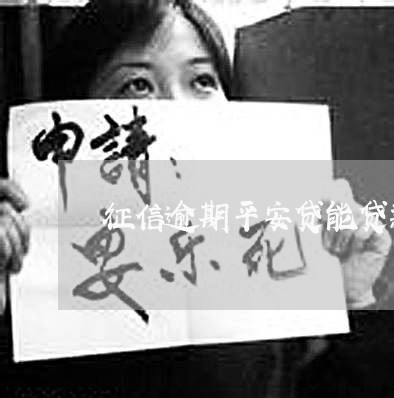 申請：
征信逾期平安贷能贷
安乐死